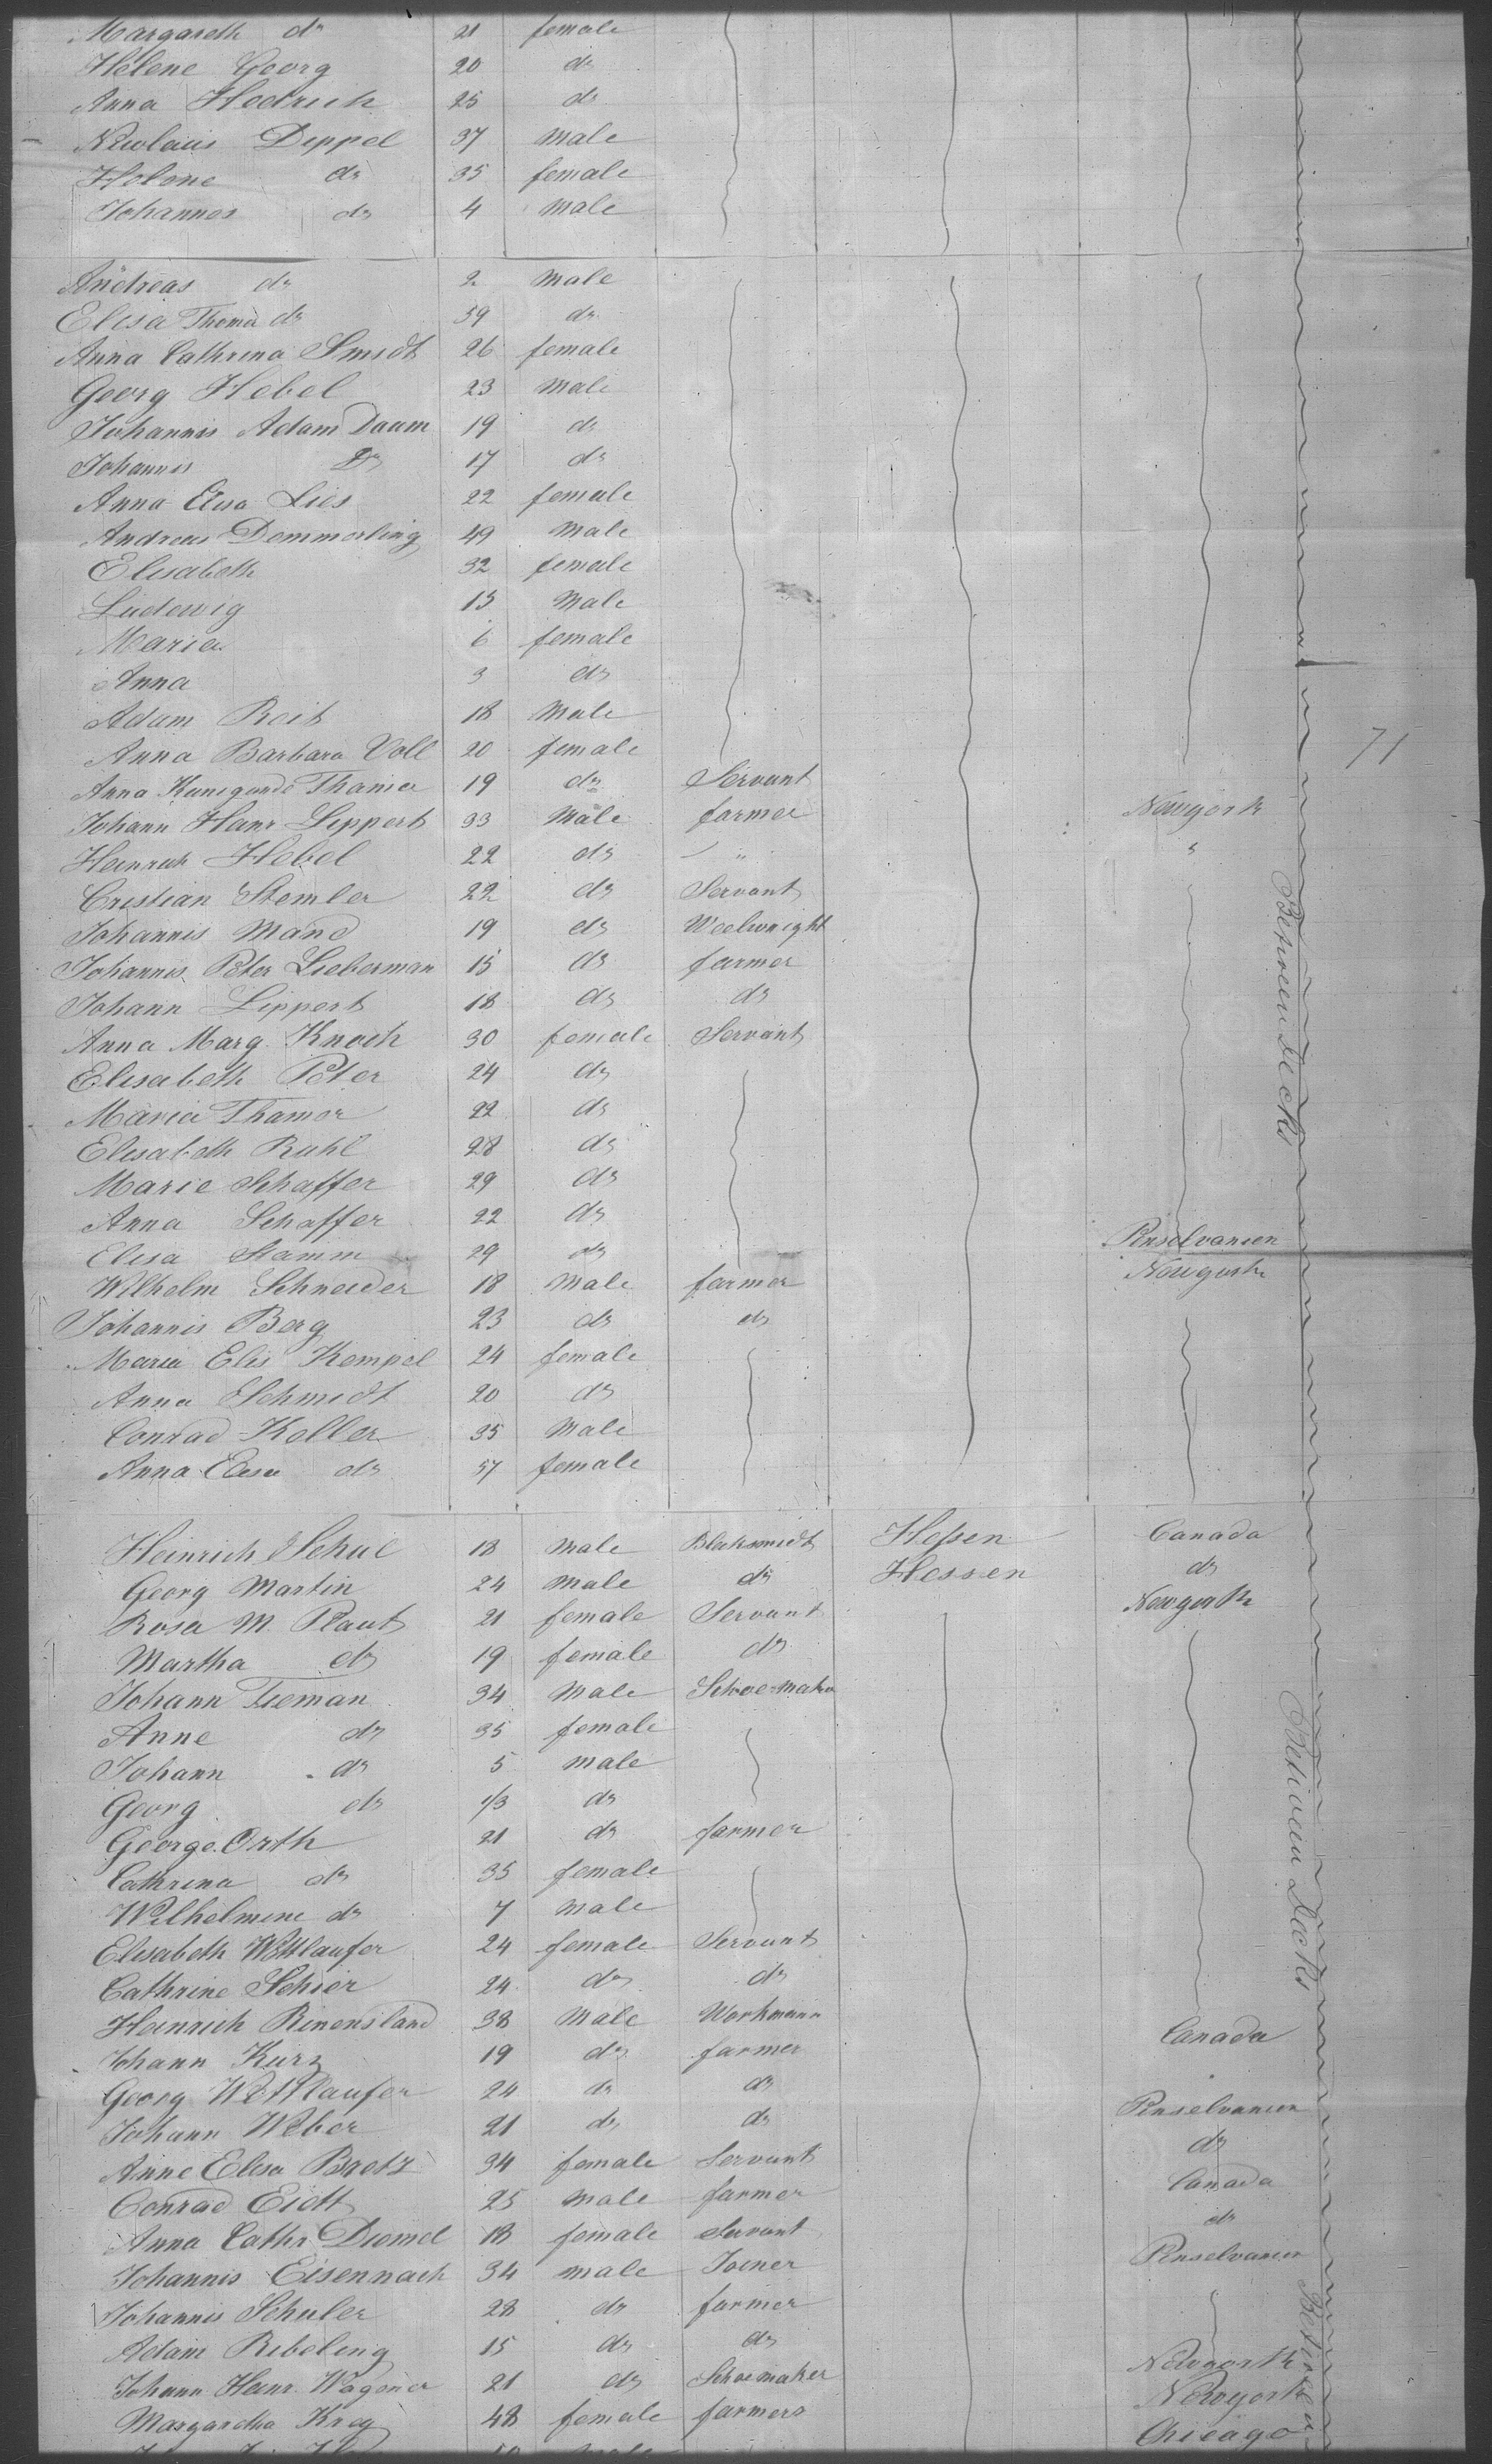 Margareth do 21 female
Helene Georg 20 do
Anna Hedrich 25 do
Nicolaus Deppel 37 Male
Helene do 35 female
Johannes do 4 Male
Andreas do 2 Male
Elisa Thoma do 59 do
Anna Cathrina Smidt 26 female
Georg Hebel 23 Male
Johannis Adam Daum 19 do
Johannis Do 17 do
Anna Elisa Lies 22 female
Andreas Demmerling 49 Male
Elisabeth 32 female
Ludewig 13 Male
Maria 6 female
Anna 3 do
Adam Reit 18 Male
Anna Barbara Voll 20 female 71
Anna Kunegunde Thamer 19 do Servant
Johann Heinr Lippert 33 Male farmer Newyork
Heinrich Hebel 22 do " "
Cristian Stemler 22 do Servant
Johannis Mand 19 do Weelwright
Johannis Peter Lieberman 15 do farmer
Johann Lippert 18 do do
Anna Marg. Knoch 30 female Servant
Elisabeth Peter 24 do
Maria Thamer 22 do
Elisabeth Ruhl 28 do
Marie Schaffer 29 do
Anna Schaffer 22 do
Elisa Stamm 29 do Penselvanien
Wilhelm Schneider 18 Male farmer Newyork
Johannis Berg 23 do do
Maria Elis Kempel 24 female
Anna Schmidt 20 do
Conrad Koller 35 Male
Anna Elisa do 37 female
Between Decks
Heinrich Schul 18 Male Blaksmidt Hessen Canada
Georg Martin 24 Male do Hessen do
Rosa M. Plaut 21 female Servant Newyork
Martha do 19 female do
Johann Tieman 34 Male Schoe-maker
Anne do 35 female
Johann do 5 Male
Georg do 1/3 do
George Orth 21 do farmer
Cathrina do 35 female
Wilhelmine do 7 Male
Elisabeth Wettlaufer 24 female Servant
Cathrine Schier 24 do do
Heinrich Rinensland 38 Male Workmann
Johann Kurz 19 do farmer Canada
Georg Wettlaufer 24 do do
Johann Weber 21 do do Penselvanien
Anne Elisa Bretz 34 female Servant do
Conrad Eidt 25 Male farmer Canada
Anna Cathr Diemel 18 female Servant do
Johannis Eisennach 34 male Joiner Penselvanien
Johannis Schuler 28 do farmer
Adam Ribeling 15 do do
Johann Heinr. Wagener 21 do Schoemaker Newyork
Margaretha Kreg 48 female farmers Newyork
Chicago
Between Decks
Between